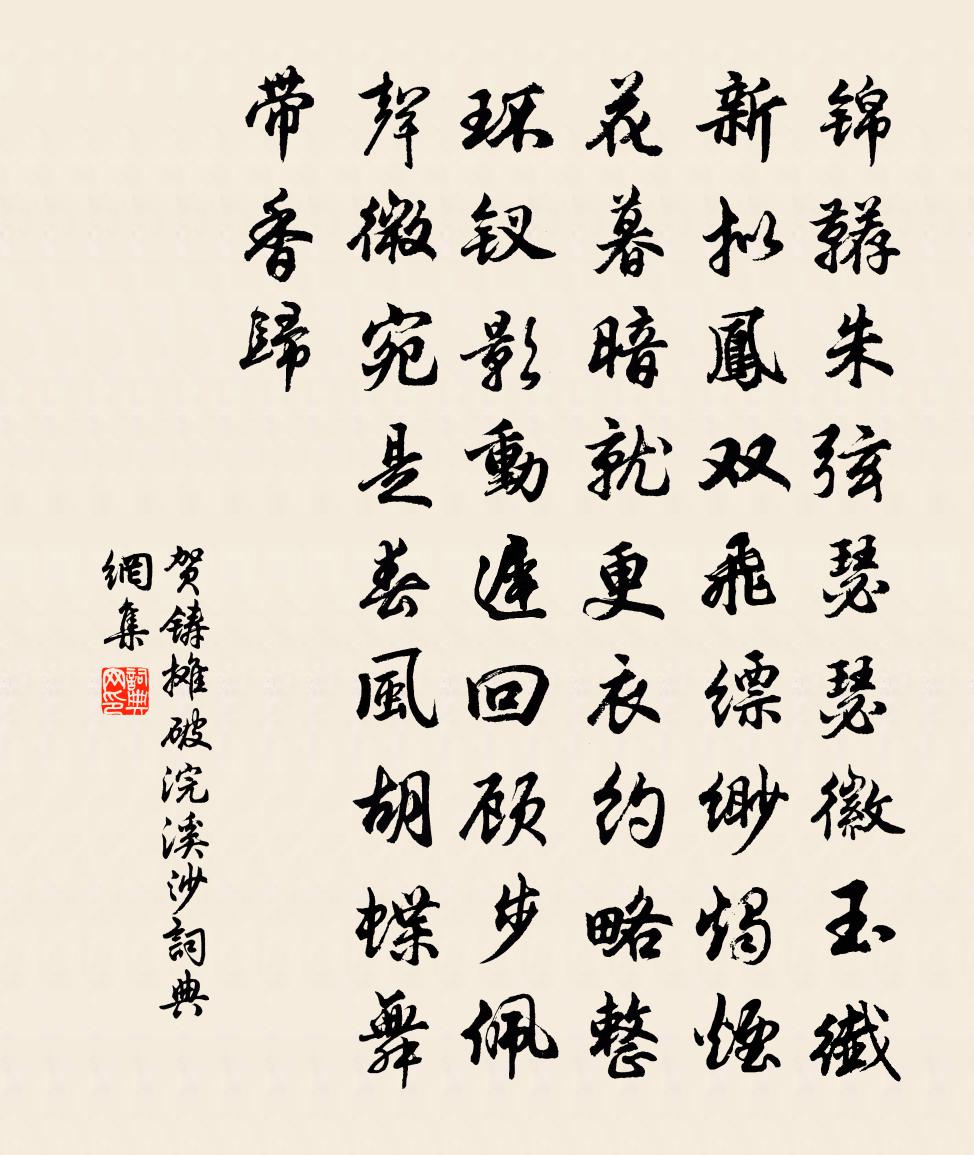 锦韉朱弦瑟瑟徽玉纖
新拟鳳双飛縹缈燭煙
花暮暗就更衣约略整
环钗影動遲回顾步佩
聲微宛是春風胡蝶舞
带香歸
贺鑄摊破浣溪沙詞典
網集
詞典网印